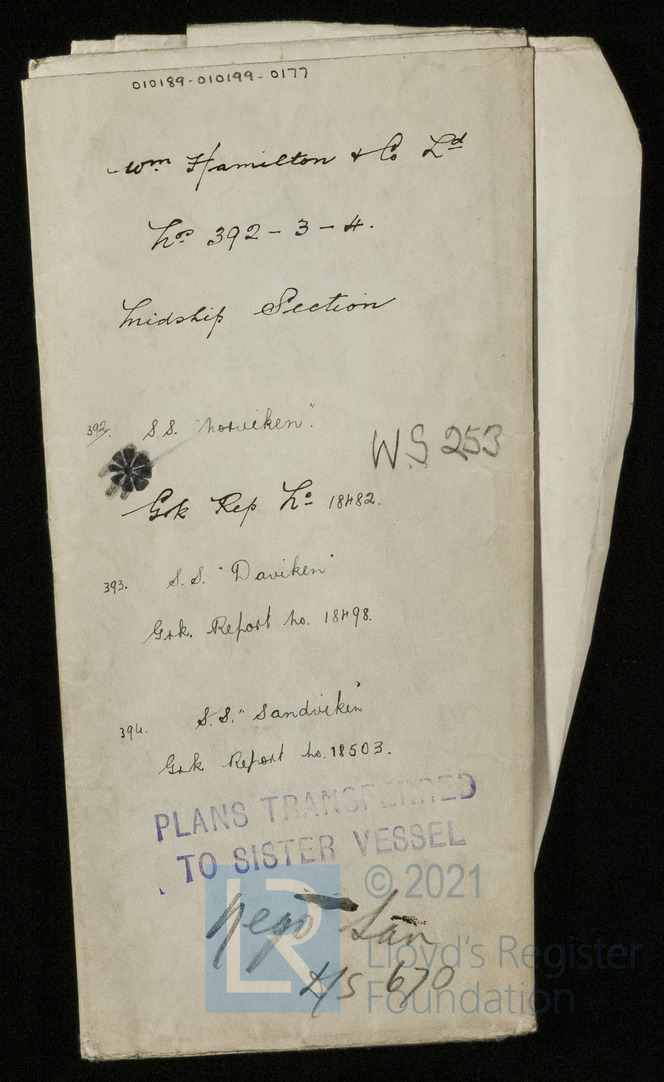 010189-010199-0177
Wm Hamilton & Co Ld
Nos 392-3-4.
Midship Section
392. S.S. "Norviken".
W.S 253
Grk Rep No 18482.
393. S.S. "Daviken"
Grk. Report No. 18498.
394. S.S. "Sandviken"
Grk Report No. 18503.
PLANS TRANSFERRED
TO SISTER VESSEL
© 2021
LR
Lloyd's Register
Foundation
670